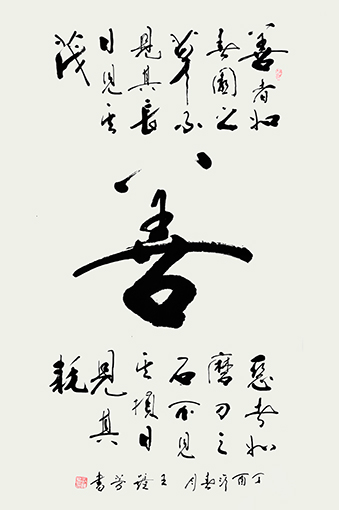 善者如
春園之
草不
見其長
日見其
茂
善
惡者如
磨刀之
石不見
其損日
見其
耗
丁酉春月 王書